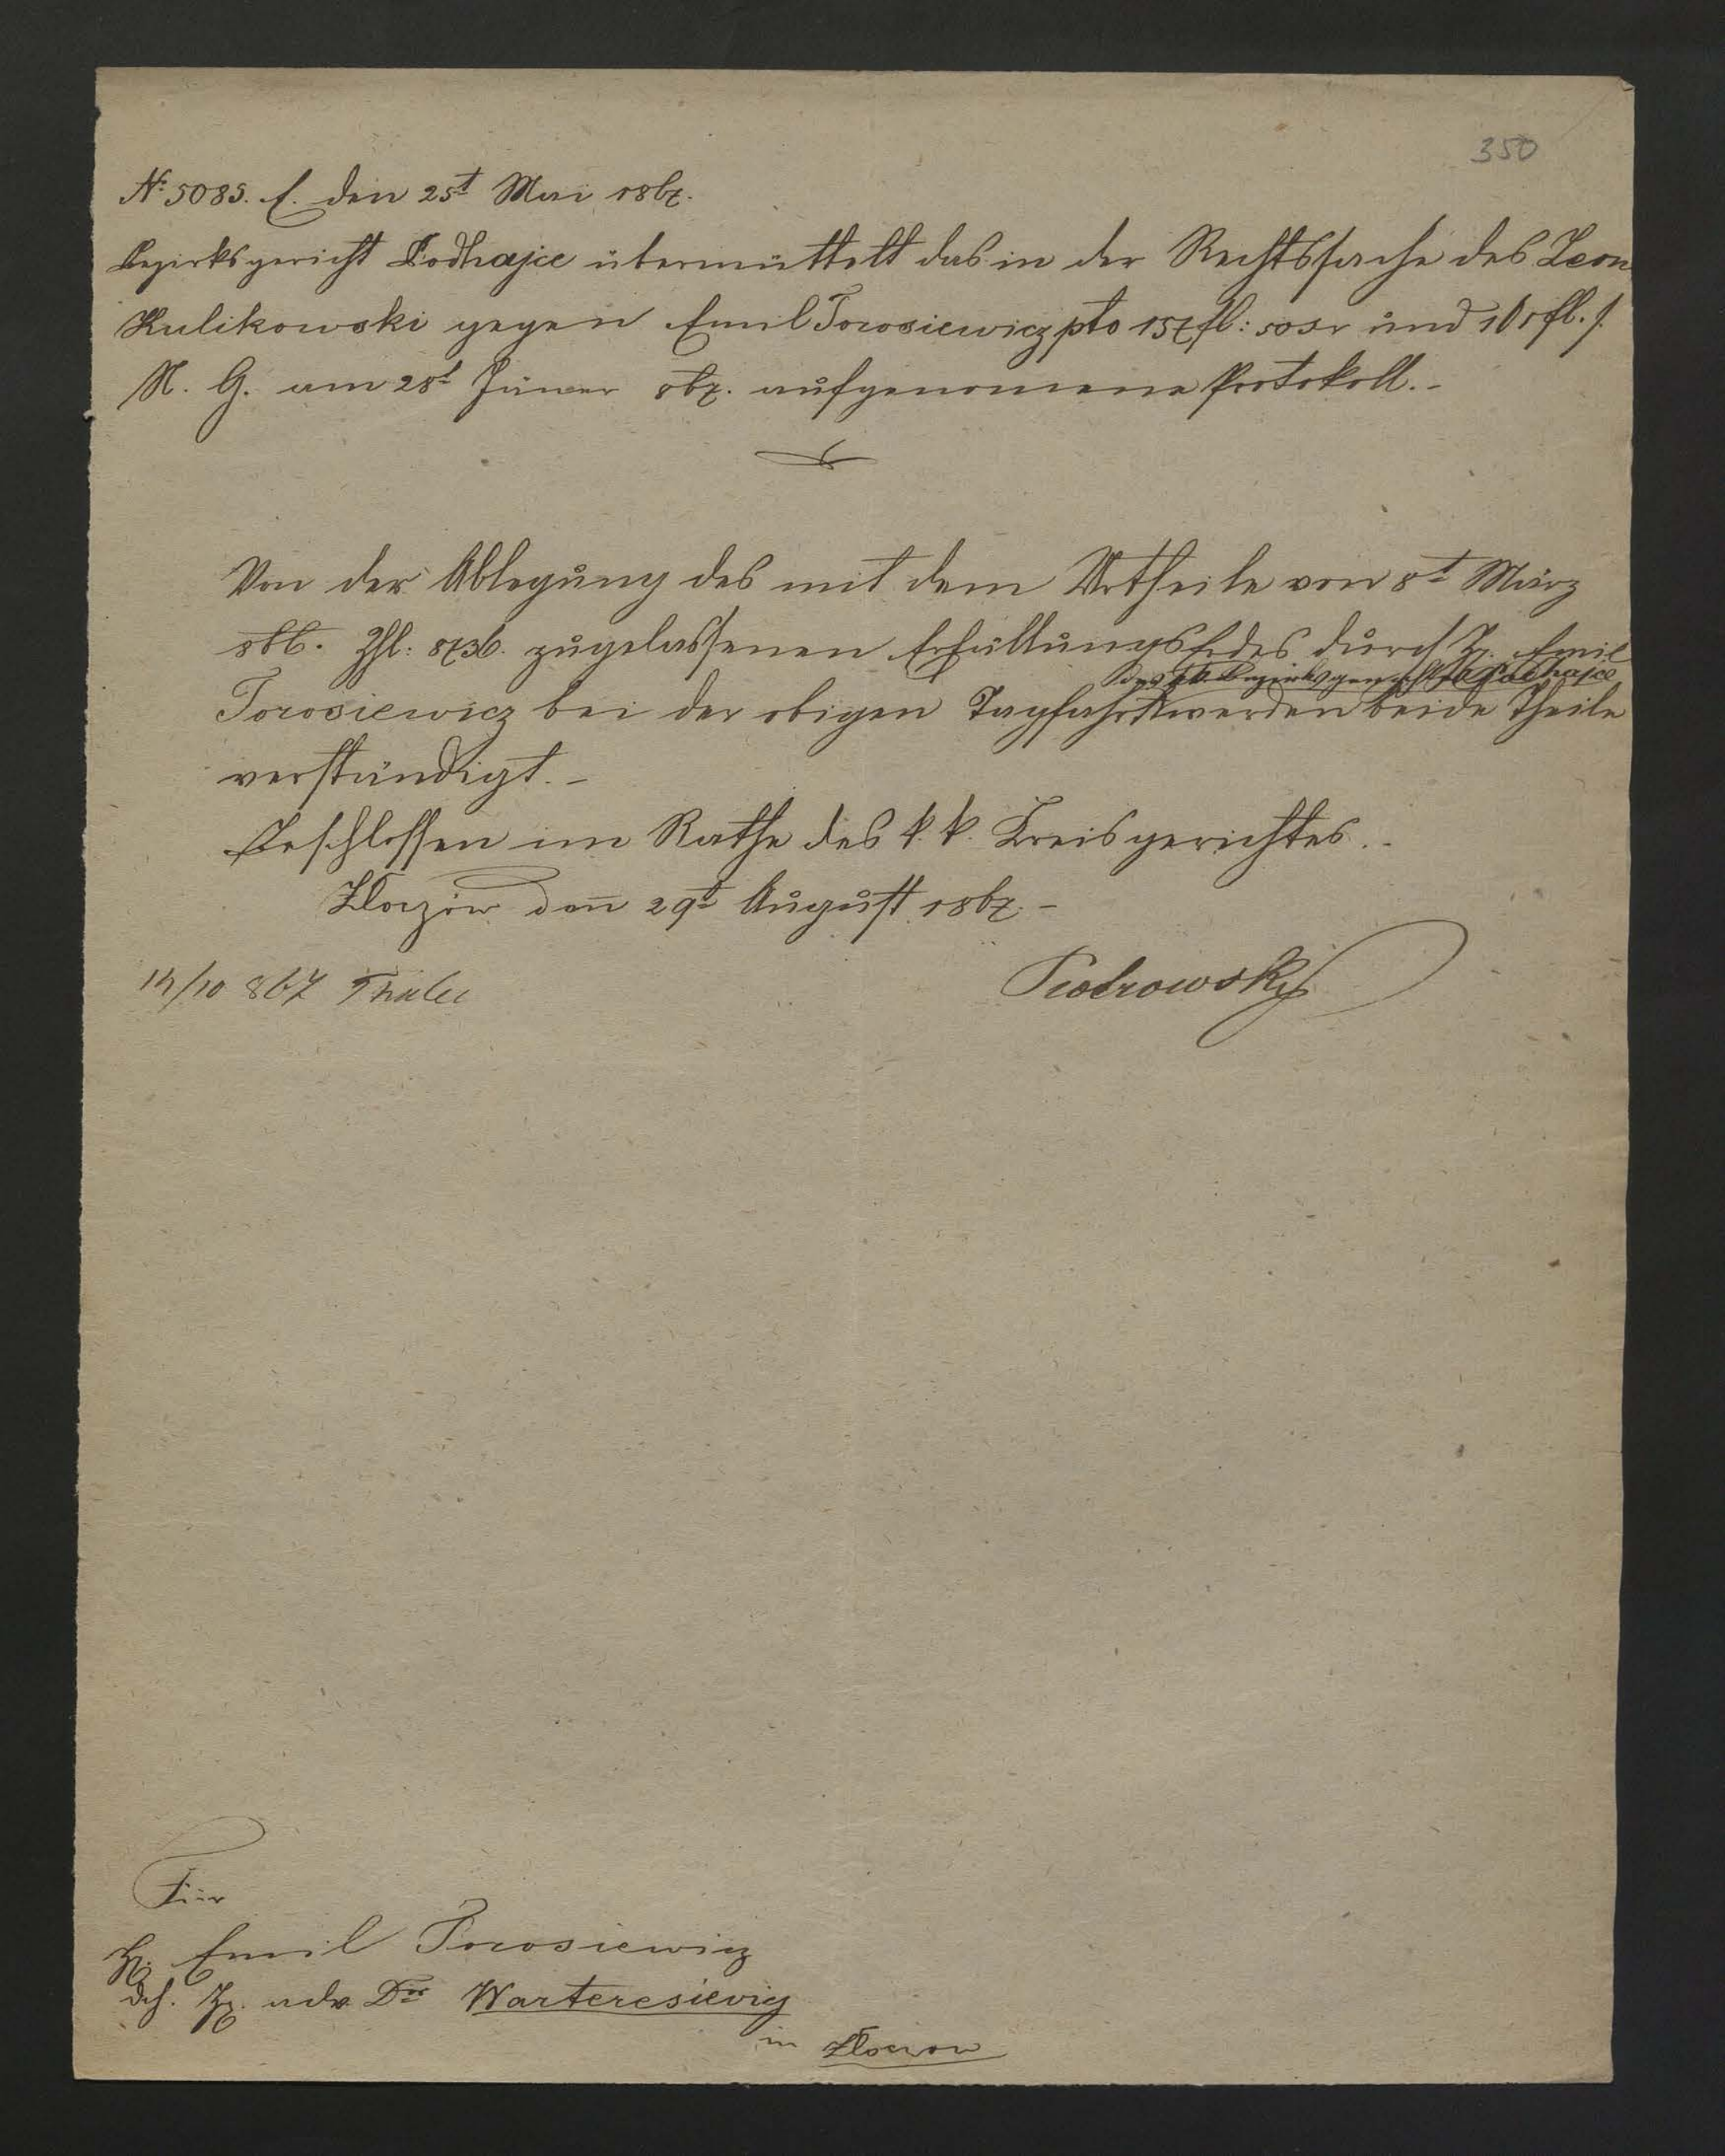 350
№ 5085. E. den 25t Mai 1867.
Bezirksgericht Podhajce übermüttelt das in der Rechtssache des Leon
Kulikowski gegen Emil Torosiewicz pto 157 fl: 50 und fl. s.
N. G. am 28t Jäner 867. aufgenomene Protokoll.-
Von der Ablegung des mit dem Urtheile von 8t März
866. Zhl: 8736. zugelassenen ErfüllungsEides durch H. Emil
des kk. Bezirksgerichts Podhajce
Torosiewicz bei der obigen Tagfahrt werden beide Theile
verständigt.-
Beschlossen im Rathe des k. k. Kreisgerichtes.-
Złoczów den 29t August 1867.-
14/10 867
Piotrowski
Für
H. Emil Torosiewicz
dch. H. adv. Dr Warteresiewicz
in Złoczow